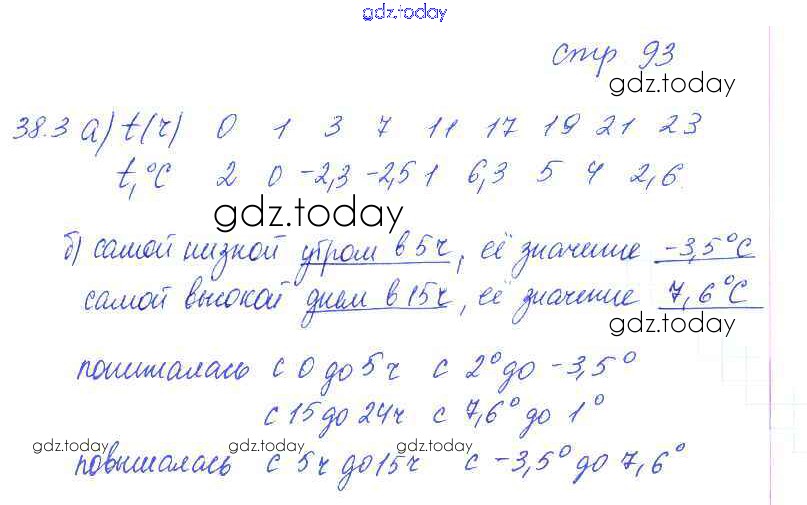 gdz.today
стр 93
gdz.today
38.3 а) t(ч) 0 1 3 7 11 17 19 21 23
t,°C 2 0 -2,3 -2,5 1 6,3 5 4 2,6.
gdz.today
б) самой низкой утром в 5ч, её значение -3,5°C
самой высокой днем в 15ч, её значение 7,6°C
gdz.today
понижалась с 0 до 5ч с 2° до -3,5°
с 15 до 24ч с 7,6° до 1°
gdz.today gdz.today gdz.today
повышалась с 5ч до 15ч с -3,5° до 7,6°